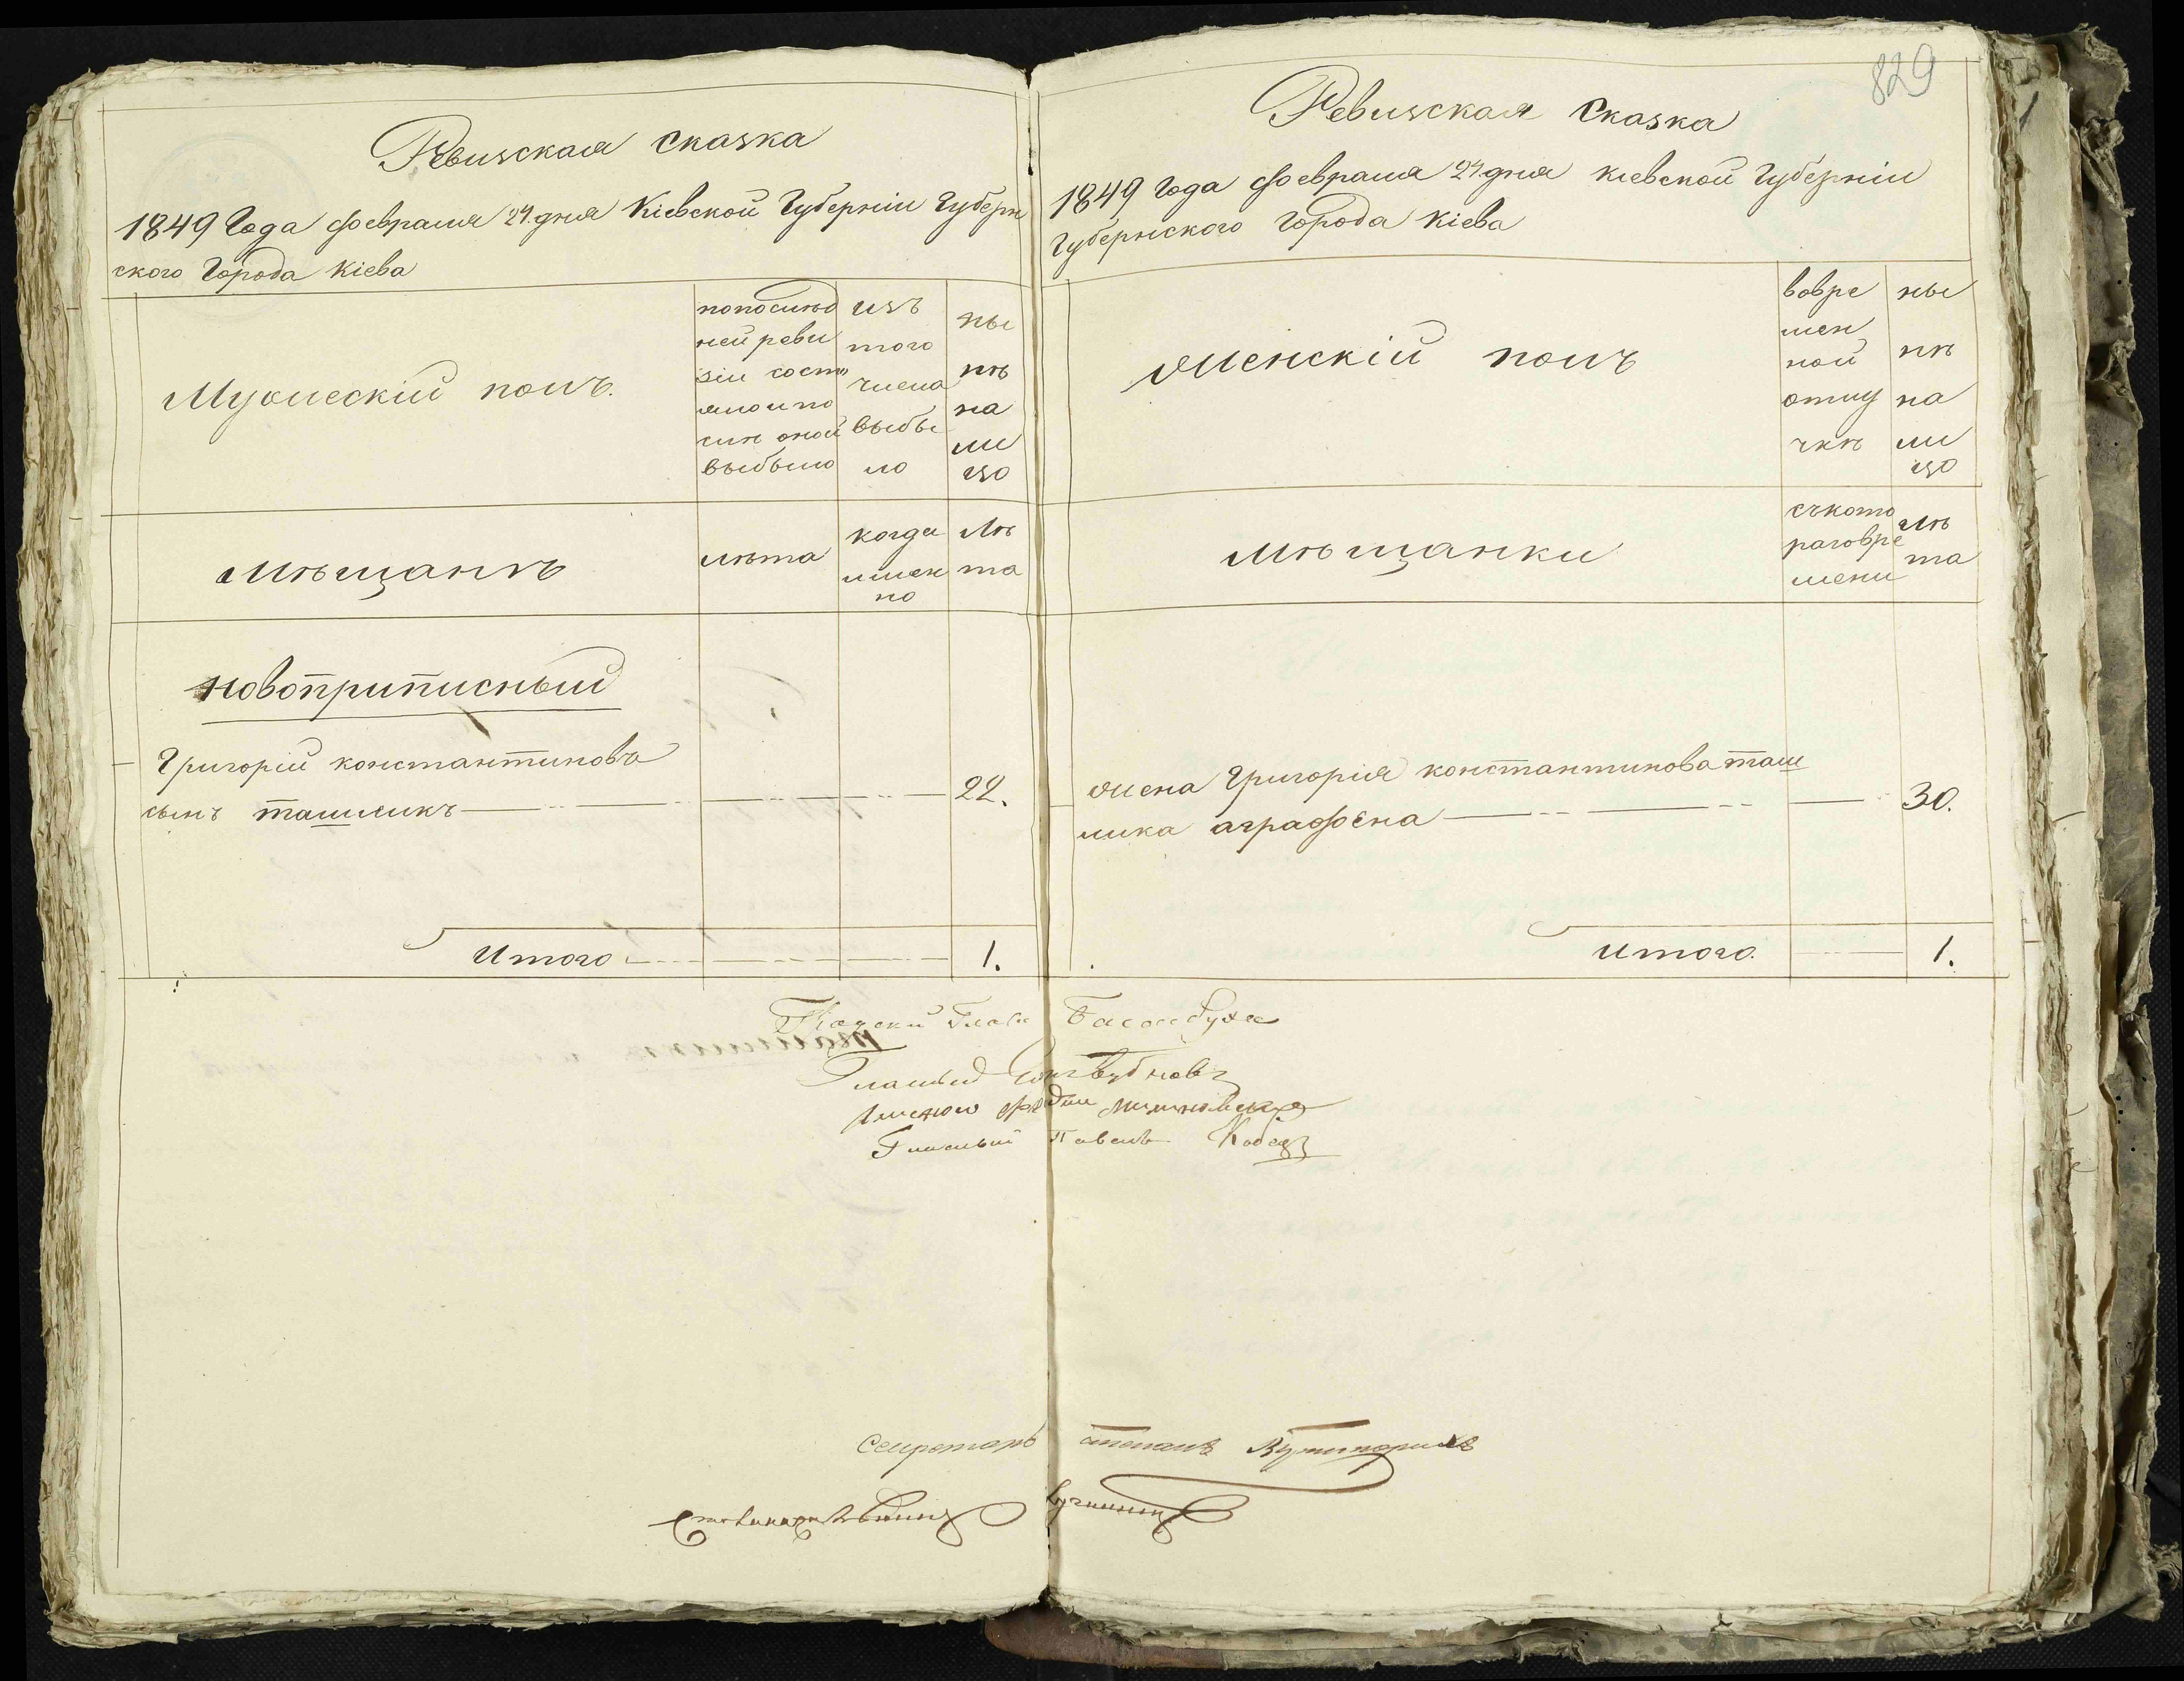 Ревизская сказка
1849 Года февраля 24 дня Кіевской Губерніи Губерн
ского Города Кіева
Мужескій полъ.
попослѣд
ней реви
зіи состо
яло и по
слѣ оной
выбыло
изъ
того
числа
выбы
ло
ны
нѣ
на
ли
цо
мѣщанъ
лѣта
когда
имен
но
Лѣ
та
новоприписный
Григорій константиновъ
сынъ ташликъ 22.
Итого 1.
829
Ревизская Сказка
1849 Года февраля 24 дня кіевской Губерніи
Губернского Города Кіева
Женскій полъ
вовре
мен
ной
отлу
чкѣ
ны
нѣ
на
ли
цо
мѣщанки
съкото
раговре
мени
Лѣ
та
жена Григорія константинова таш
лика аграфена 30.
Итого. 1.
Глава
Гласный
Гласный Павелъ
Секретарь